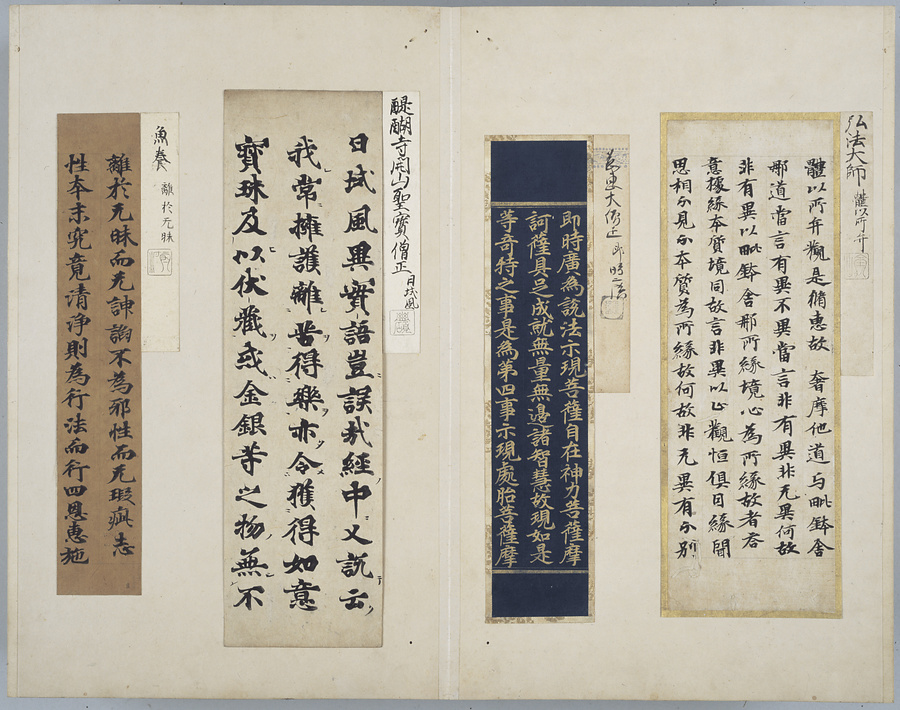 弘法大師
體以所弁
體以所弁觀是脩恵故　奢摩他道与毗鉢舍
那道當言有異不異當言非有異非无異何故
非有異以毗鉢舍那所緣境心為所緣故者若
意據緣本質境同故言非異以止觀恒俱日緣聞
思相分見分本質為所緣故何故非无異有分別
即時廣為說法示現菩薩自在神力菩薩摩
訶薩具足成就無量無邊諸智慧故現如是
等奇特之事是為第四事示現處胎菩薩摩
醍醐寺開山聖寶僧正
日域風
日域風異實語豈誤哉經中又說云
我常擁護離苦得樂亦令獲得如意
寶珠及以伏藏或金銀等之物無不
魚養
離於无昧
離於无昧而充諫諂不為邪性而充瑕疵志
性本末究竟清淨則為行法而行四恩惠施